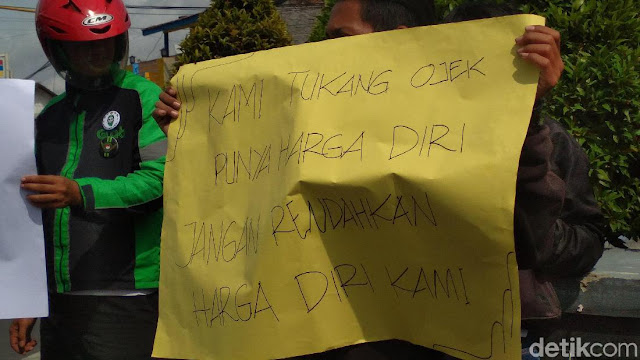 KAMI TUKANG OJEK
PUNYA HARGA DIRI
JANGAN RENDAHKAN
HARGA DIRI KAMI
detikcom